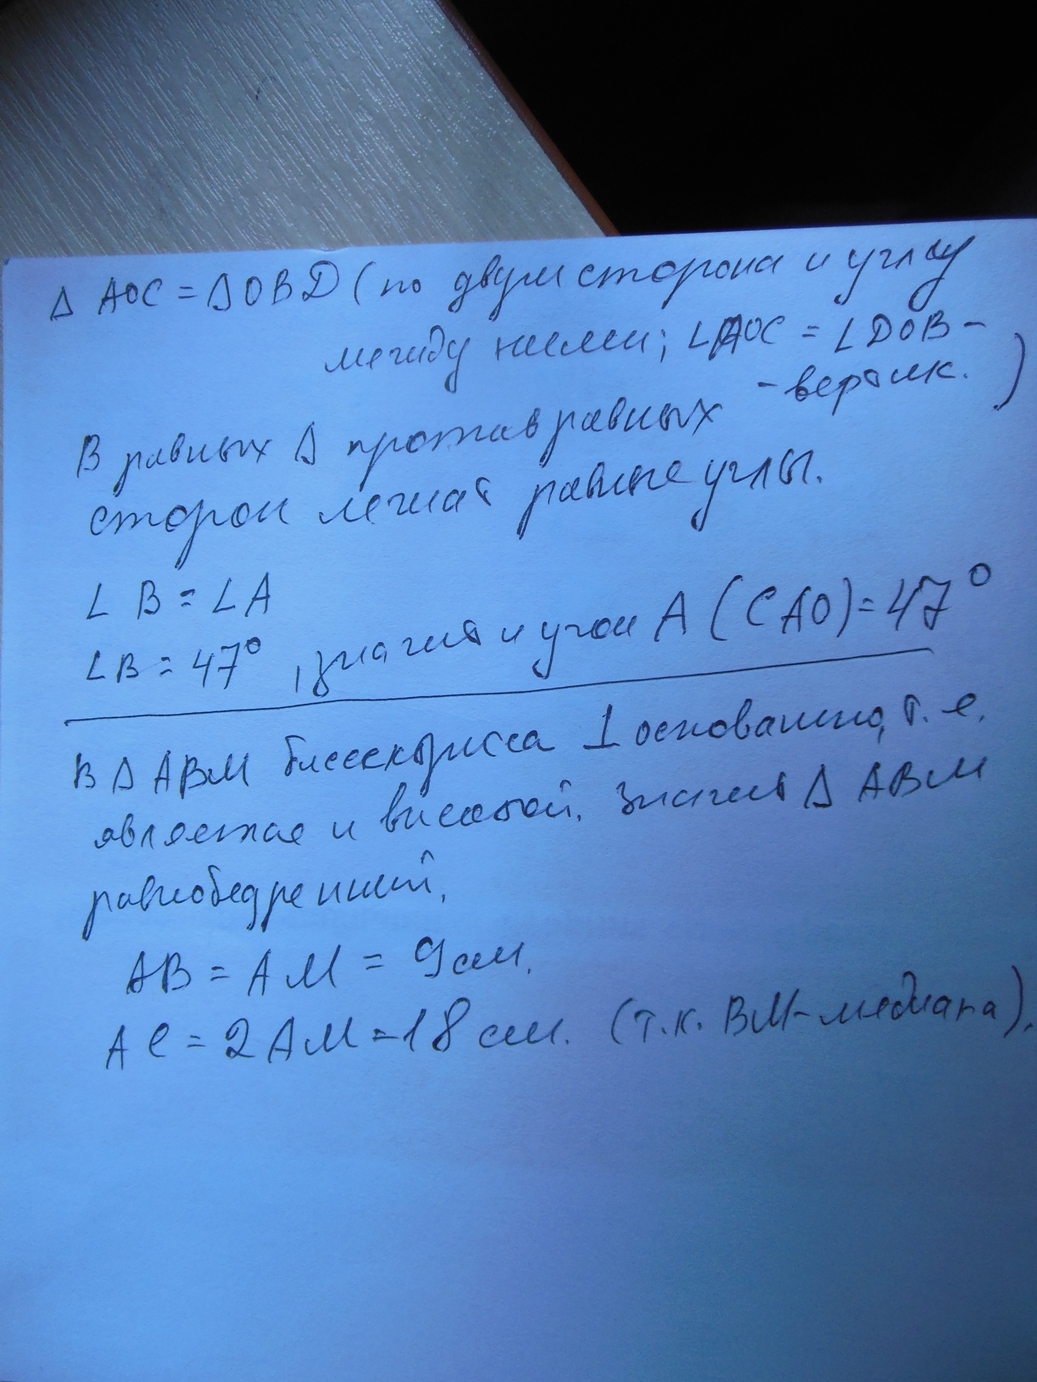 Δ AOC = Δ OBD (по двум сторона и углу
между ними; ∠AOC = ∠DOB -
- вертик. )
В равных Δ против равных
сторон лежат равные углы.
∠ B = ∠A
∠B = 47°, значит и угол A (CAO) = 47°
В Δ ABM биссектрисса ⊥ основанию, т. е.
является и высотой. Значит Δ ABM
равнобедренный.
AB = AM = 9 см.
AC = 2 AM = 18 см. (т.к. BM - медиана).